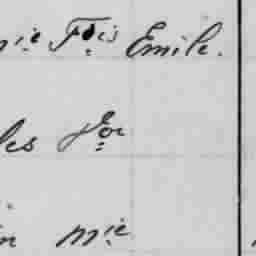 ie Fois Emile.
les Jor
in Mie